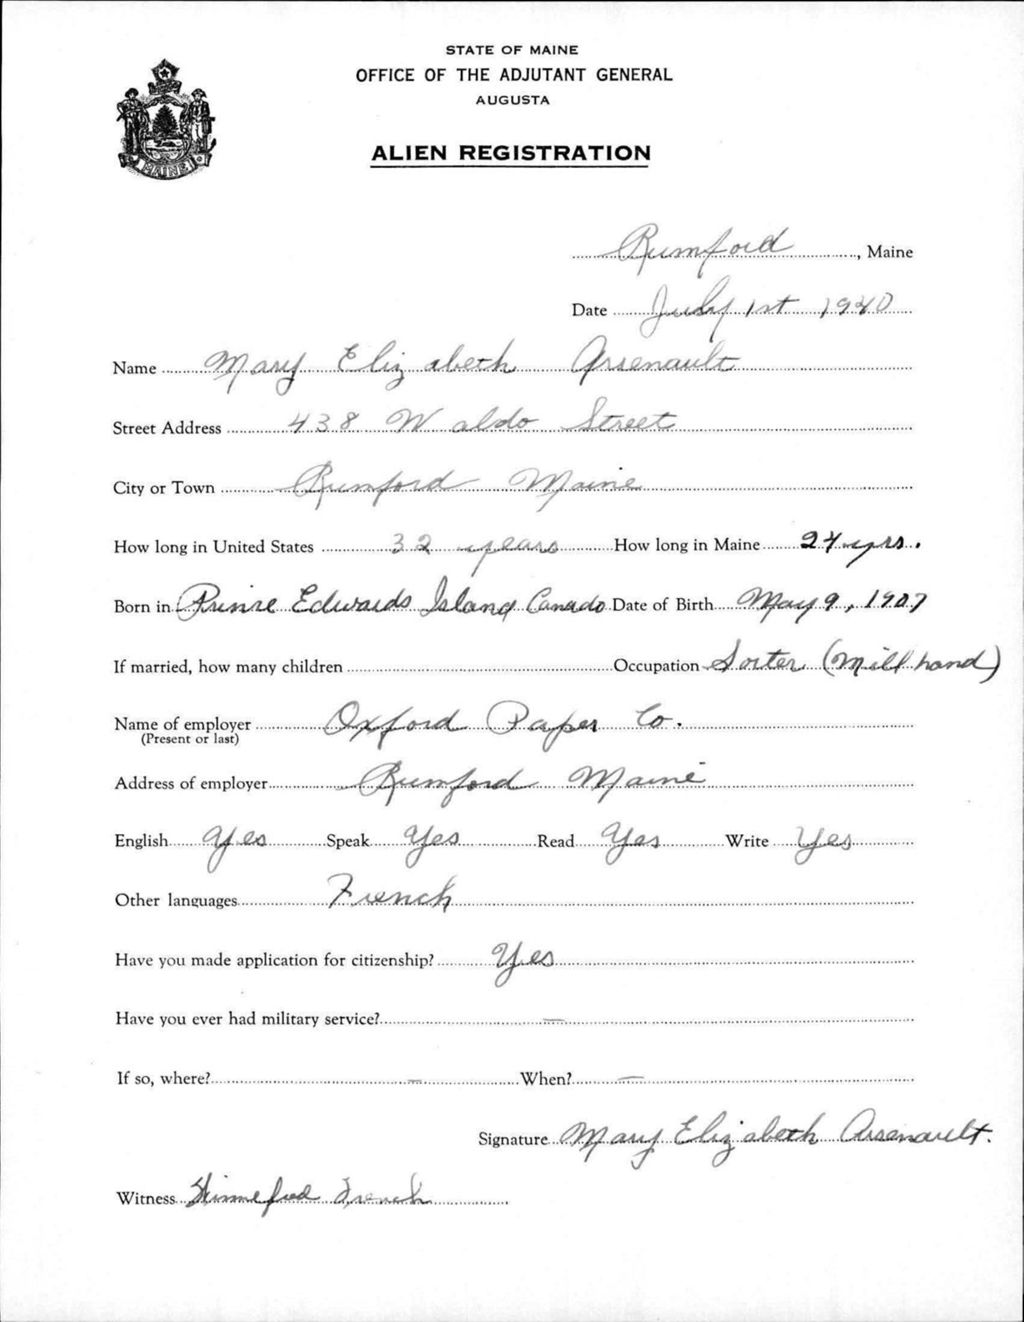 STATE OF MAINE
OFFICE OF THE ADJUTANT GENERAL
AUGUSTA
ALIEN REGISTRATION
MAINE
Rumford, Maine
Date July 1st 1940
Name Mary Elizabeth Arsenault
Street Address 438 Waldo Street
City or Town Rumford Maine
How long in United States 32 years How long in Maine 24 yrs.
Born in Prince Edwards Island Canada Date of Birth May 9, 1907
If married, how many children Occupation Sorter (Mill hand)
Name of employer Oxford Paper Co.
(Present or last)
Address of employer Rumford Maine
English Yes Speak Yes Read Yes Write Yes
Other languages French
Have you made application for citizenship? Yes
Have you ever had military service? —
If so, where? — When? —
Signature Mary Elizabeth Arsenault.
Witness French